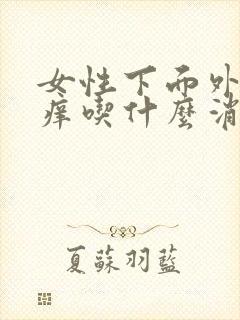 女性下而外
痒喫什麼消
夏蘇羽藍